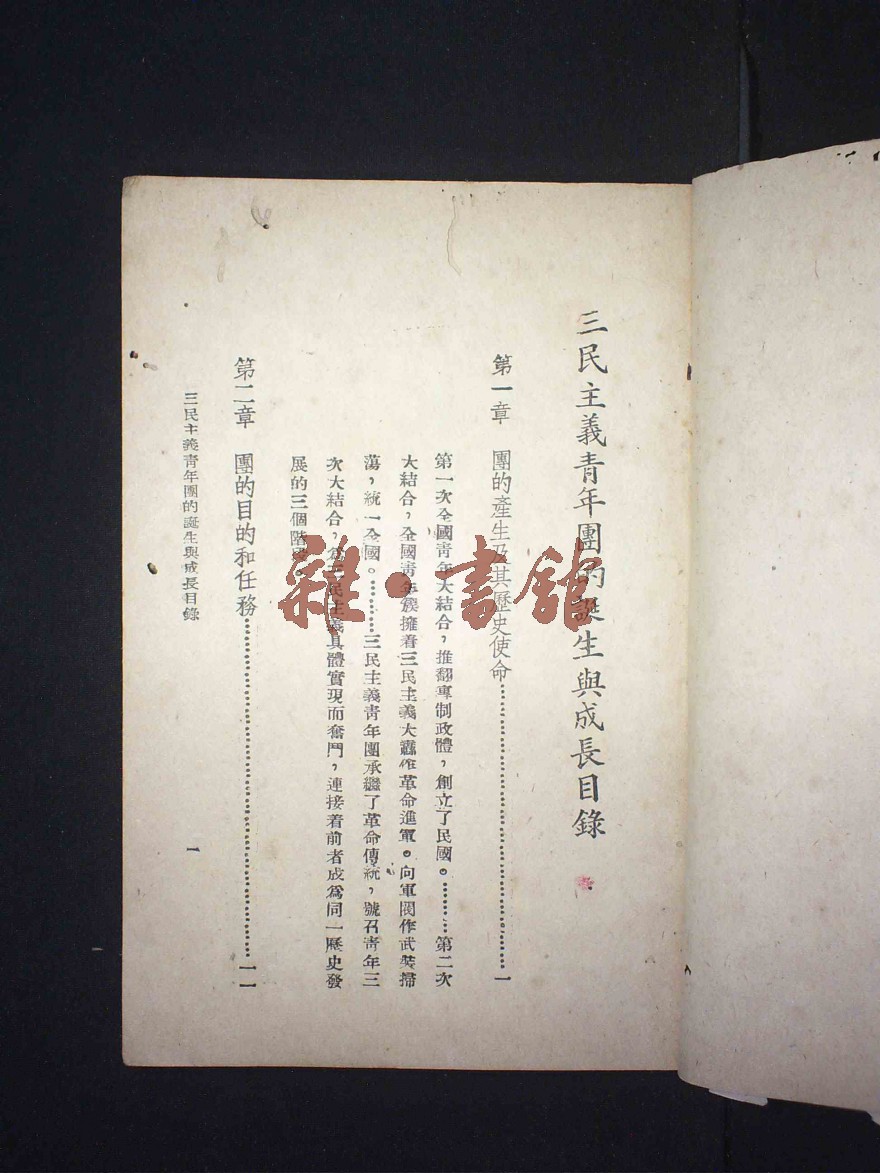 三民主義青年團的誕生與成長目錄
第一章　團的產生及其歷史使命………一
第一次全國靑年大結合，推翻專制政體，創立了民國。………第二次
大結合，全國靑年簇擁着三民主義大纛作革命進軍。向軍閥作武裝掃
蕩，統一全國。………三民主義靑年團承繼了革命傳統，號召靑年三
次大結合，爲三民主義具體實現而奮鬥，連接着前者成爲同一歷史發
展的三個階段。
第二章　團的目的和任務………一一
三民主義靑年團的誕生與成長目錄
一
雜·書館